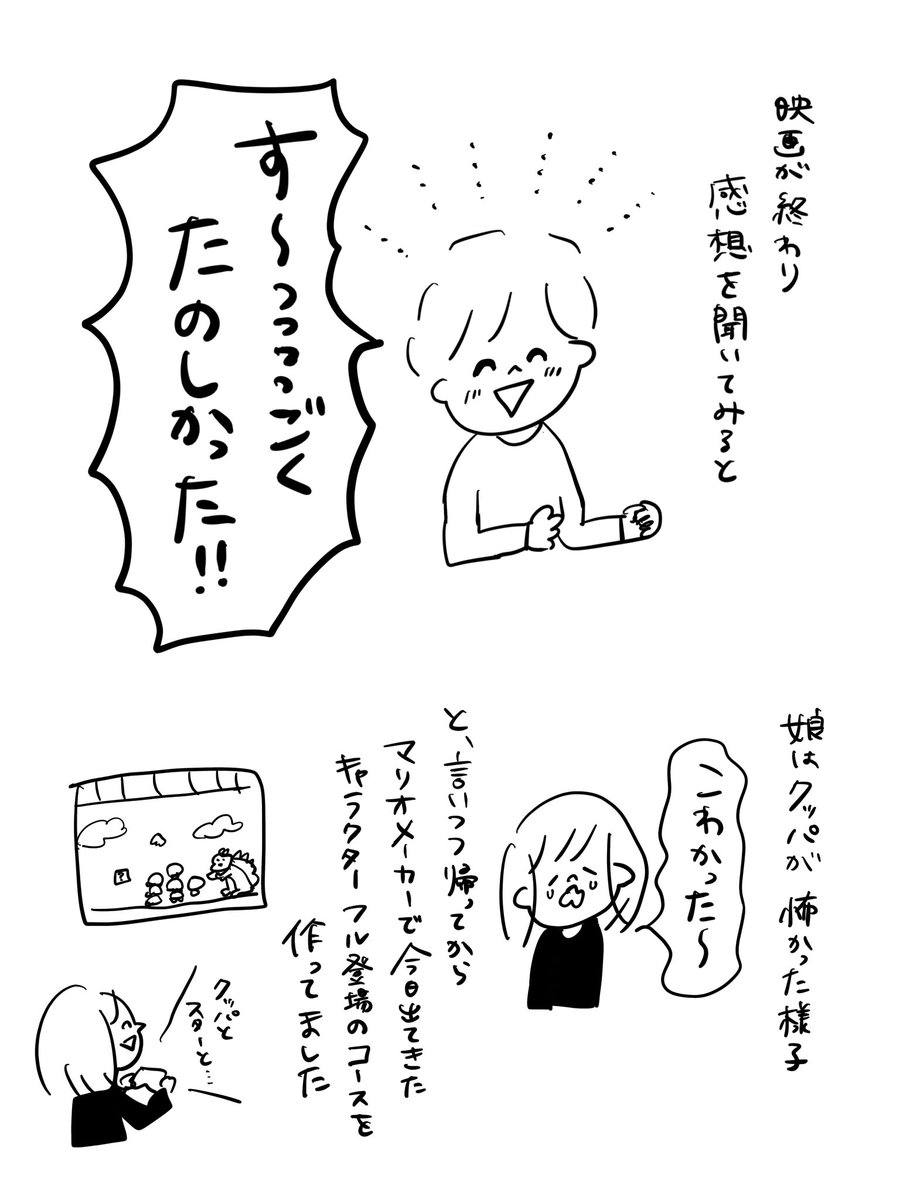 映画が終わり
感想を聞いてみると
す〜っっっごく
たのしかった!!
娘はクッパが怖かった様子
こわかった〜
と、言いつつ帰ってから
マリオメーカーで今日出てきた
キャラクターフル登場のコースを
作ってました
?
クッパと
スターと…